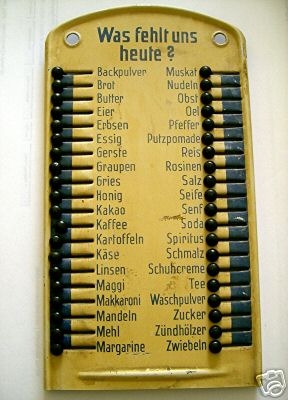 Was fehlt uns
heute?
Backpulver Muskat
Brot Nudeln
Butter Obst
Eier Oel
Erbsen Pfeffer
Essig Putzpomade
Gerste Reis
Graupen Rosinen
Gries Salz
Honig Seife
Kakao Senf
Kaffee Soda
Kartoffeln Spiritus
Käse Schmalz
Linsen Schuhcreme
Maggi Tee
Makkaroni Waschpulver
Mandeln Zucker
Mehl Zündhölzer
Margarine Zwiebeln